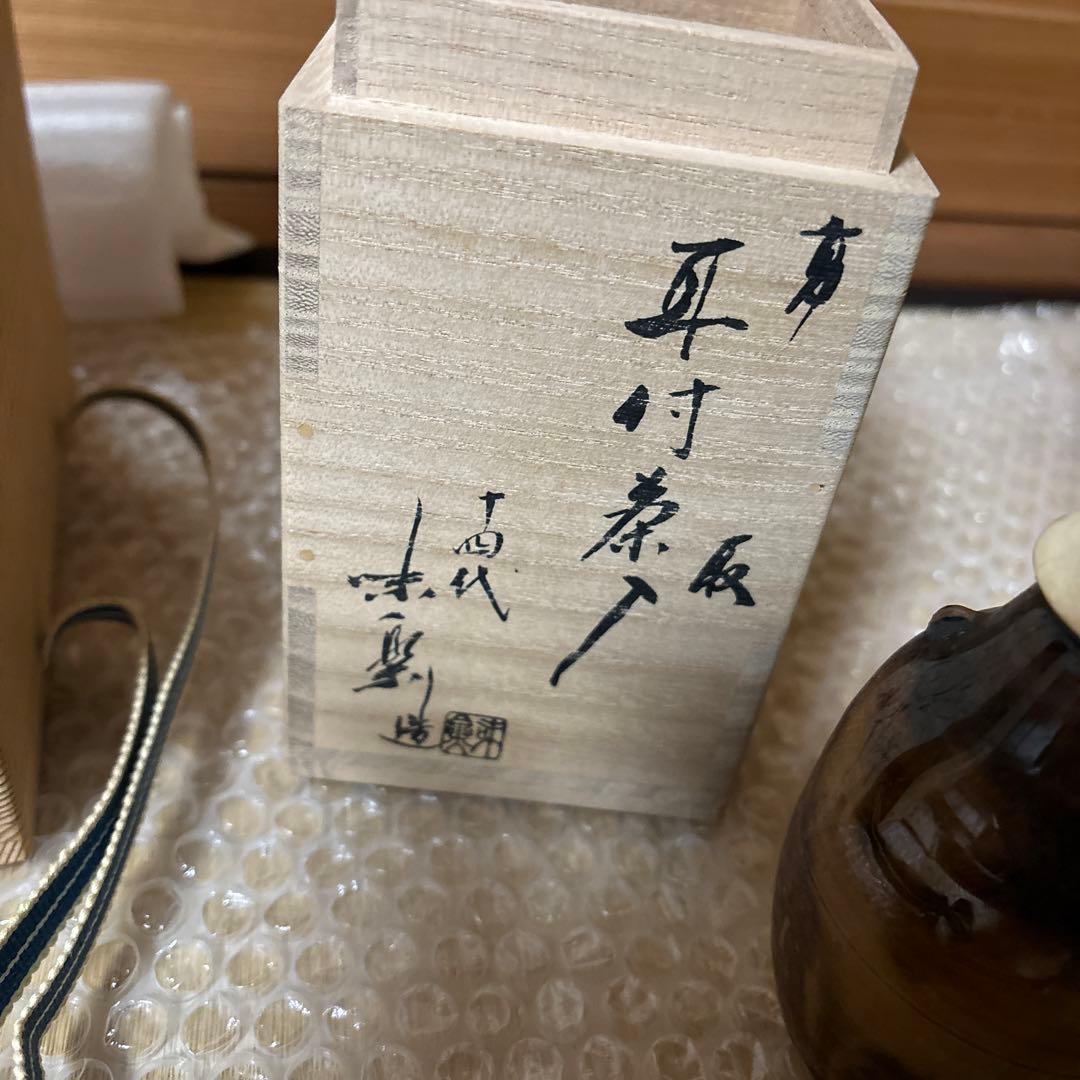 高取
耳付茶入
十四代
味楽造